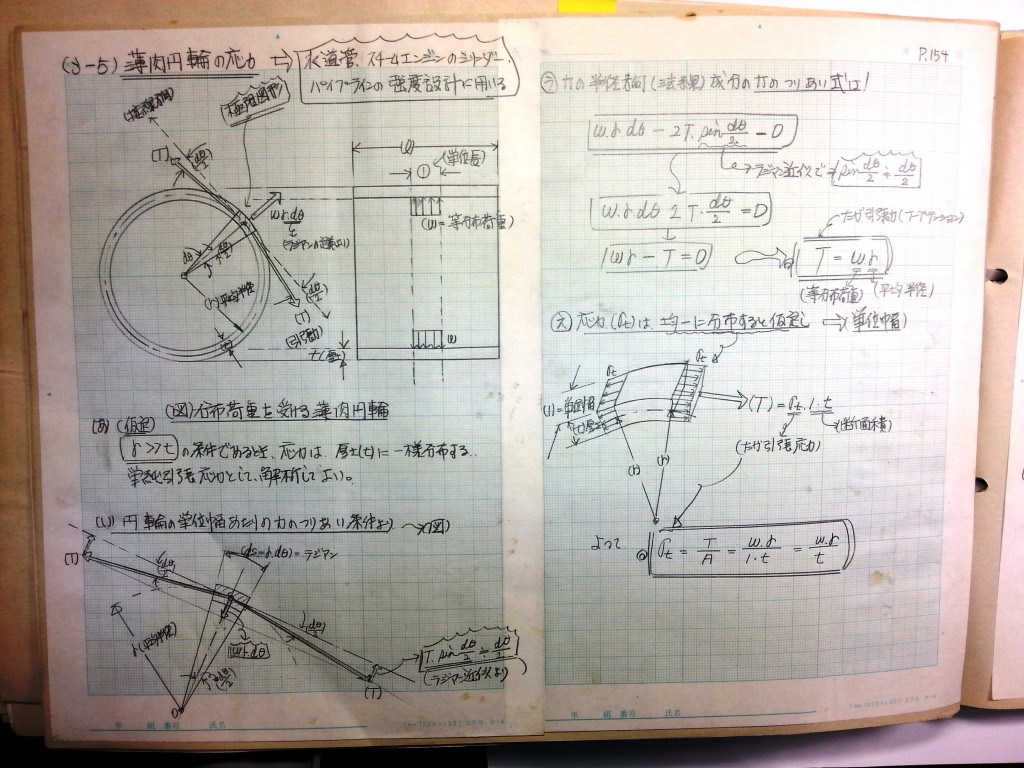 (3-5) 薄肉円輪の応力 → 水道管、スチームエンジンのシリンダー、
パイプラインの強度設計に用いる
P.154
(接線方向)
(極限図形)
(T)
(dθ/2)
w.r.dθ
(ラジアンの定義より)
dθ
(r)平均半径
(dθ/2)
(T)
(引張力)
t(厚さ)
l
①
(単位長)
(w)=等分布荷重
w
(図)分布荷重を受ける薄肉円輪
(あ) (仮定)
r>>t の条件であるとき、応力は、厚さ(t)に一様分布する。
単純引張応力として、解析してよい。
(い) 円輪の単位幅あたりの力のつりあい条件より (図)
(T)
(dθ/2)
(ds=r.dθ)=ラジアン
r(平均半径)
w.r.dθ
(dθ/2)
(dθ/2)
O
(T)
T.sin dθ/2 ≒ dθ/2
(ラジアン近似より)
年 組 番号 氏名
(う) 力の半径方向(法線)成分の力のつりあい式は!
w.r.dθ - 2T.sin dθ/2 = 0
ラジアン近似で sin dθ/2 ≒ dθ/2
w.r.dθ 2T.dθ/2 = 0
wr - T = 0
たが引張力(フープテンション)
T = wr
(等分布荷重) (平均半径)
(え) 応力(σt)は、均一に分布すると仮定し → (単位幅)
σt
σt
(1)=単位幅
(t)厚さ
(T) = σt.1.t
(断面積)
(たが引張応力)
(r)
(r)
よって
σt = T/A = w.r/1.t = w.r/t
年 組 番号 氏名